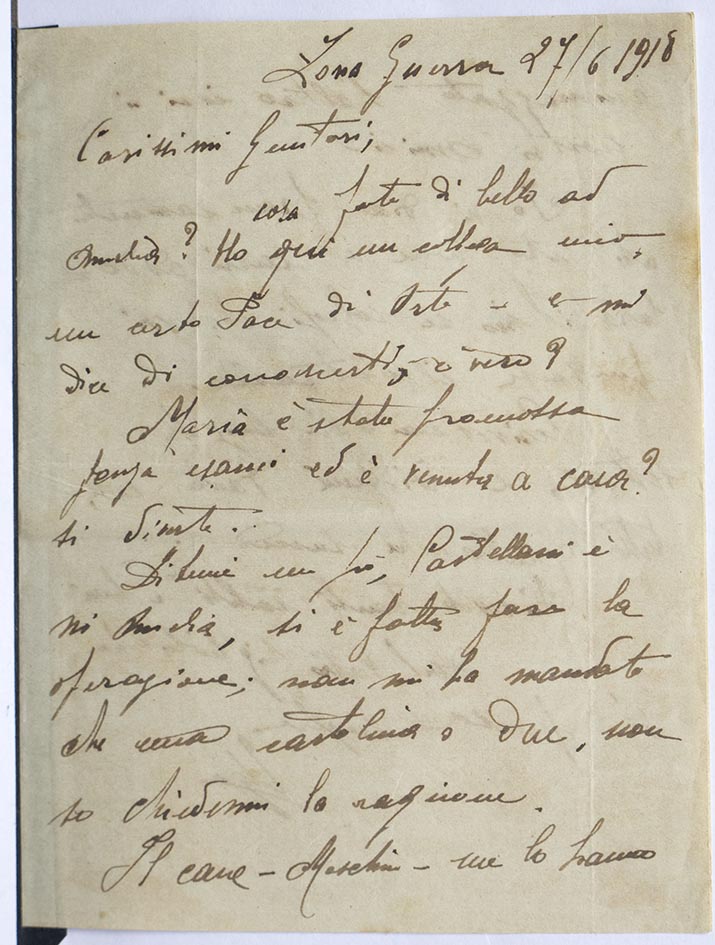 Zona Guerra 27/6 1918
Carissimi Genitori,
cosa fate di bello ad
Amelia? Ho qui un collega mio,
un certo Pace di Orte - e mi
dice di conoscerti, è vero?
Maria è stata promossa
senza esami ed è venuta a casa?
si direte.
Ditemi un po', Castellani è
in Amelia, si è fatta fare la
operazione; non mi ha mandato
che una cartolina o due, non
so chiedermi la ragione.
Il cane - Moschin - me lo hanno